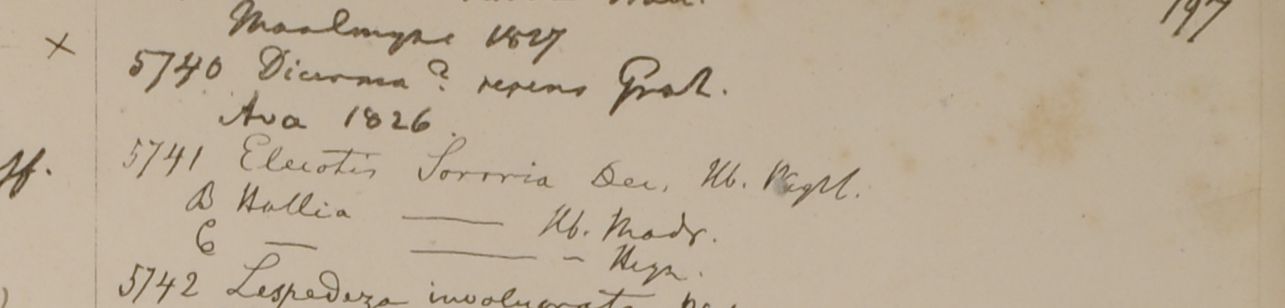 197
Moalmyne 1827
5740 Dicerma? repens Grah.
Ava 1826.
5741 Eleiotis Sororia Dec. Hb. Wight.
B Hallia — Hb. Madr.
C — — - Heyn.
5742 Lespedeza involucrata